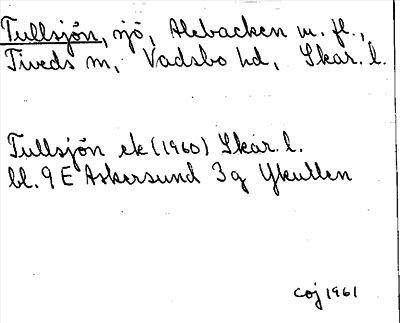 Tullsjön, sjö, Alebacken m. fl.,
Tiveds sn, Vadsbo hd, Skar. l.
Tullsjön ek (1960) Skar. l.
bl. 9 E Askersund 3 g Ykullen
COJ 1961